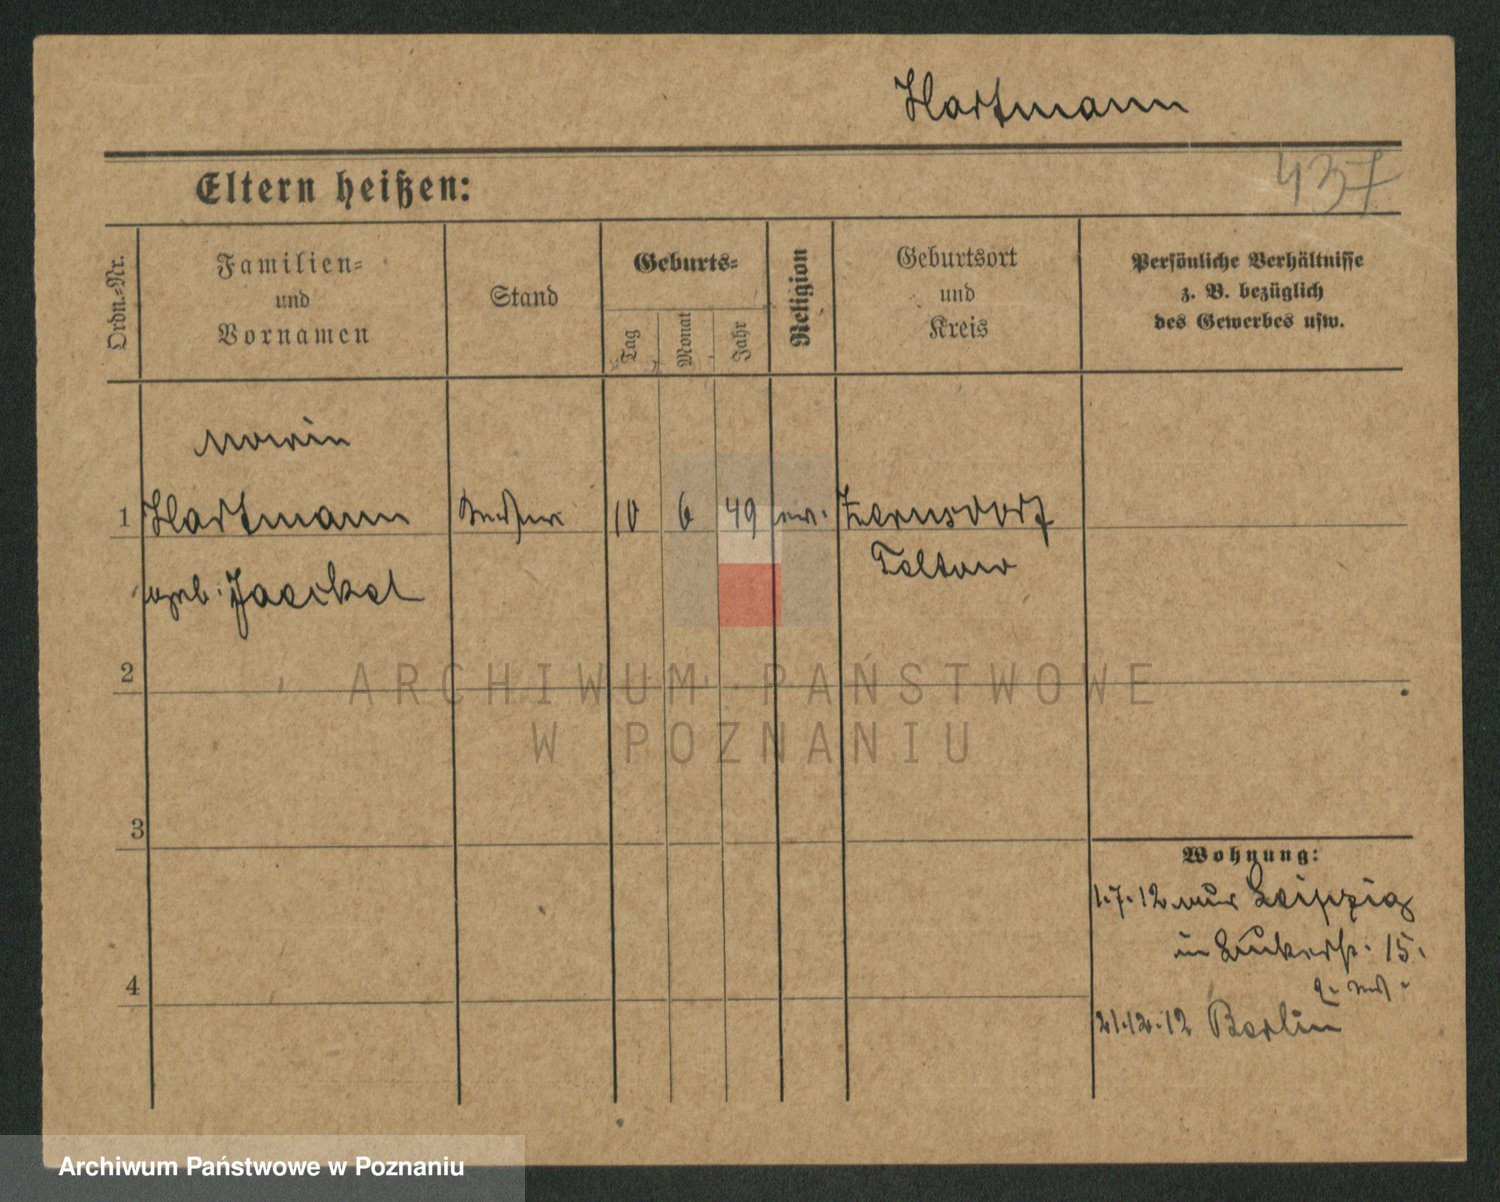 Hartmann
437
Eltern heißen:
Ordn.-Nr.
Familien-
und
Vornamen
Stand
Geburts-
Tag
Monat
Jahr
Religion
Geburtsort
und
Kreis
Persönliche Verhältnisse
z. B. bezüglich
des Gewerbes usw.
1 Hartmann 10 6 49 ev. Zernsdorf
Teltow
geb. Jaeckel
2
3
4
Wohnung:
1.7.12 von Leipzig
in 15.
21.12.12 Berlin
ARCHIWUM PAŃSTWOWE
W POZNANIU
Archiwum Państwowe w Poznaniu